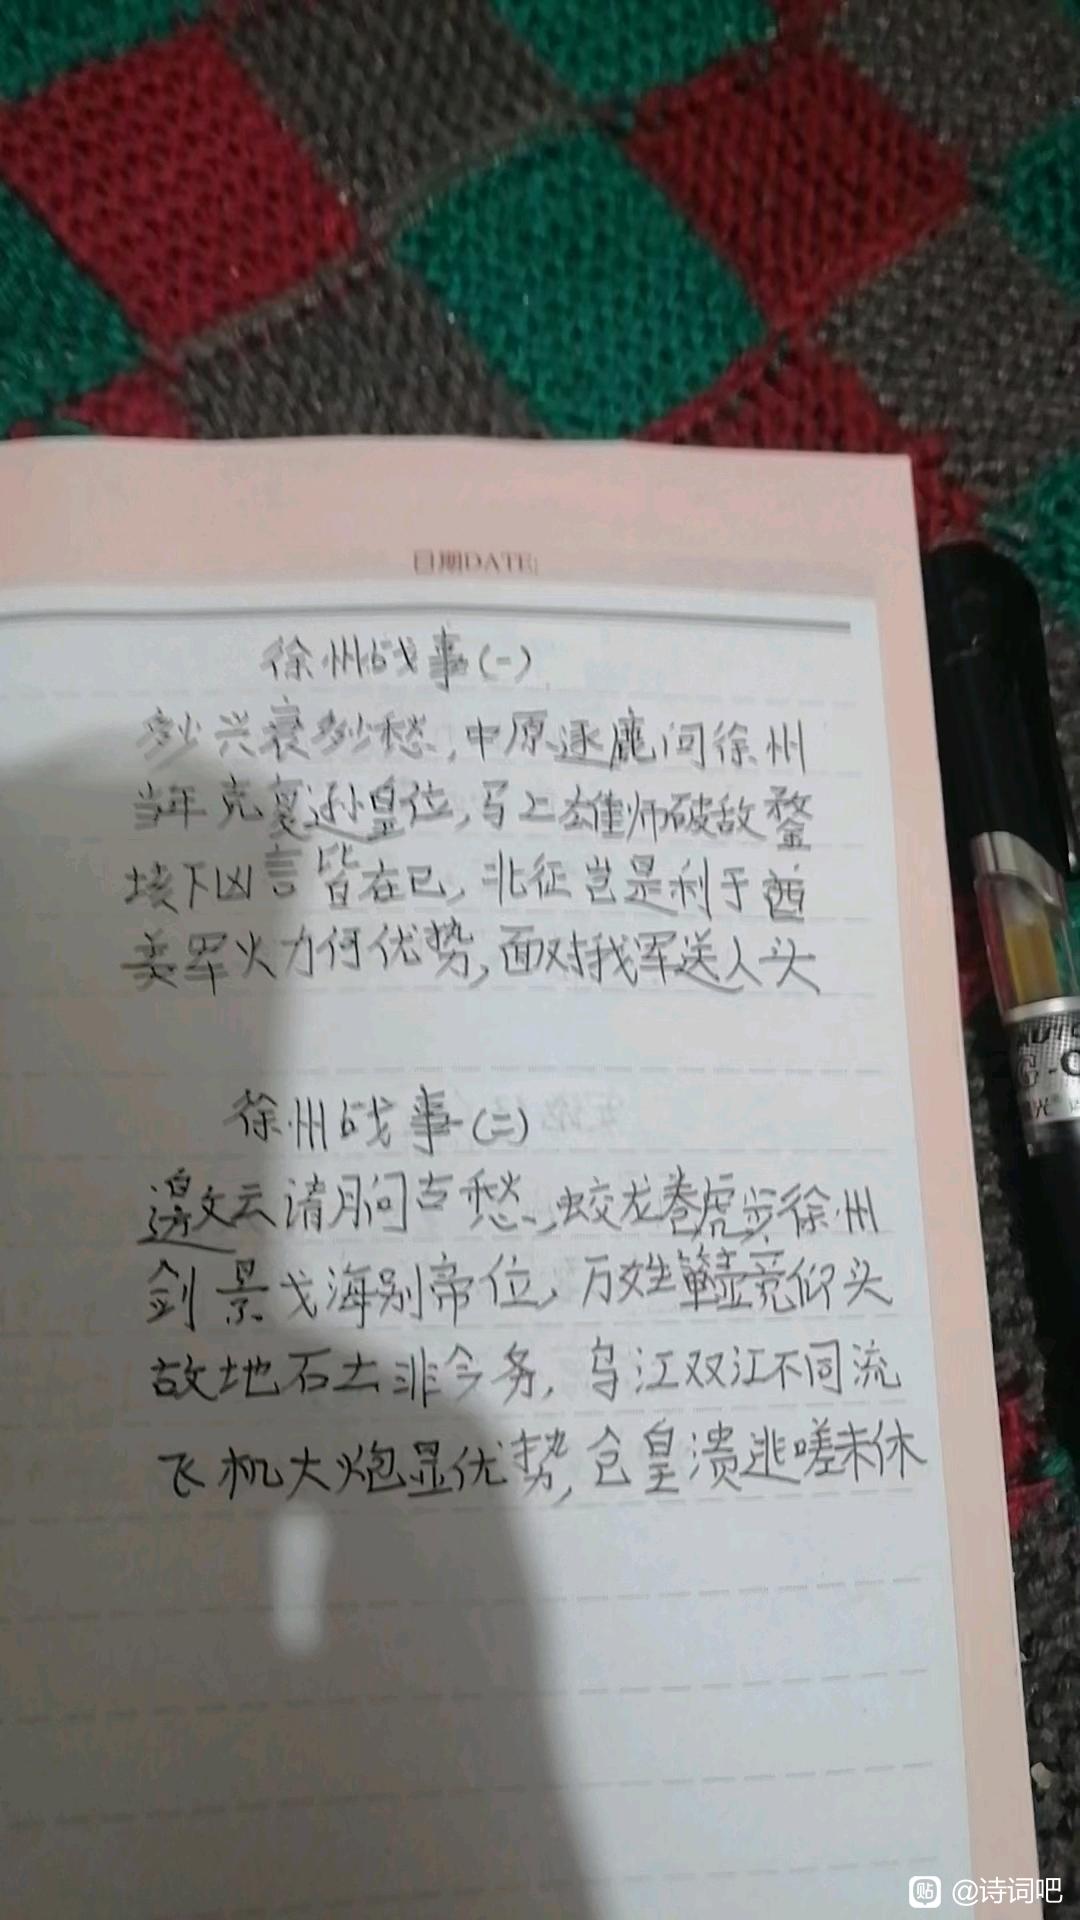 日期DATE:
徐州战事(一)
多少兴衰多少愁,中原逐鹿问徐州
当年克复逊皇位,马上雄师破敌鍪
垓下凶言皆在己,北征岂是利于酋
美军火力何优势,面对我军送人头
徐州战事(二)
邀文云请月问古愁,蛟龙卷虎步徐州
剑景戈海别帝位,万姓箪壶竞仰头
故地石土非今务,乌江双江不同流
飞机大炮显优势,仓皇溃逃嗟未休
贴 @诗词吧